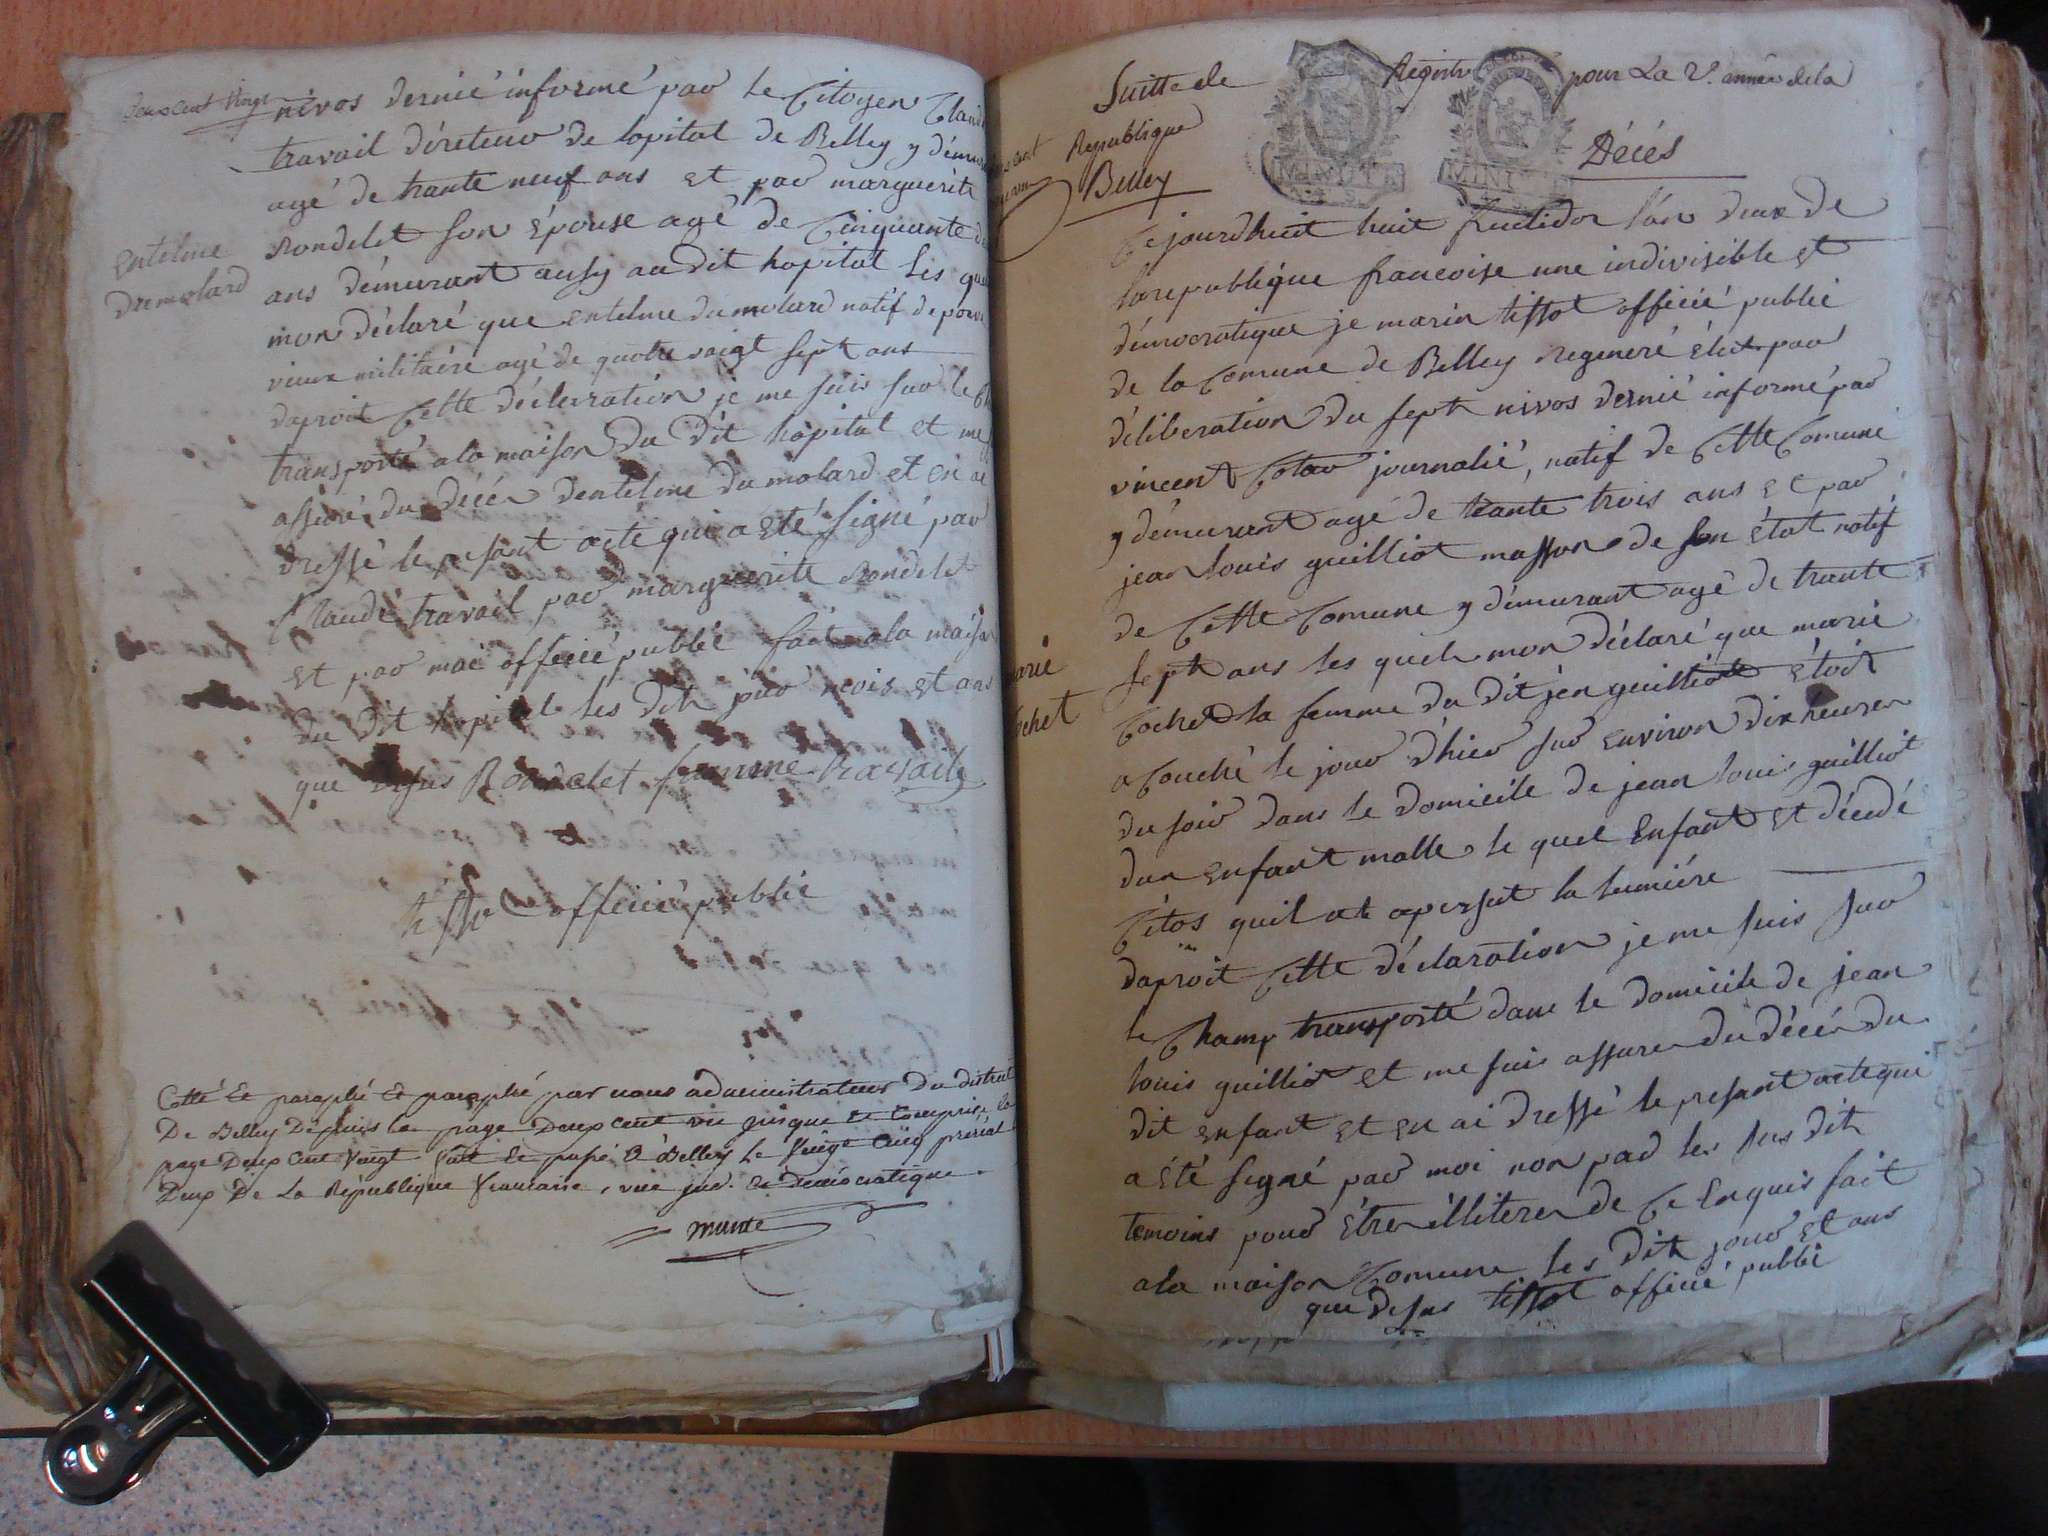 Deux Cent Vingt
nivos dernié informé par le Citoyen Claude
travail directeur de lopital de Belley y démurant
agé de trante neuf ans et par marguerite
Rondelet son Épouse agé de Cinquante
ans démurant ausy au dit hopital les quels
Entelme
Dumolard
mon déclaré que entelme du molard natif de
vieux militaire agé de quatre vaigt sept ans
daproit Cette déclaration je me suis sur le Ch
transporté a la maison Du Dit hopital et me
assuré du décés dentelme du molard et en ai
dressé le presant acte qui a été signé par
Claude travail par marguerite Rondelet
et par moi officié publié fait a la maison
du Dit hopital les dit jour mois et ans
que desus Rondelet femme travaile
tissot officié publié
Cotté Et paraphé et paraphé par nous administrateur Du district
De Belley Depuis la page Deux cent un jusque et Comprise la
page Deux cent Vingt fait Et passé à Belley le Vingt Cinq prerial
Deux De La République Francaise, une ind. et Democratique.
Munte
Suitte de Registre pour La 2e. année de la
République
Belley
Décés
MINUTE
MINUTE
Ce jourdhuit huit fructidor l'an deux de
la republique francoise une indivisible et
démocratique je marin tissot officié publié
de la Comune de Belley regeneré élut par
déliberation du sept nivos dernié informé par
vincent Cotar journalié, natif de Cette Comune
y démurant agé de trante trois ans et par
jean louis guilliot masson de son état natif
de Cette Comune y démurant agé de trante
sept ans les quels mon déclaré que marie
marie
Cochet
Cochet la femme du dit jen guilliot étoit
a Couché le jour d'hier sur environ dix heures
du soir dans le domicile de jean louis guilliot
dun enfant malle le quel Enfant et décédé
Citos quil at apersut la lumiére
daproit Cette déclaration je me suis sur
le Champ transporté dans le domicile de jean
louis guilliot et me suis assurer du décés du
dit enfant et en ai dressé le presant acte qui
a été signé par moi non par les sus dit
temoins pour être illiteres de Ce Enquis fait
a la maison Comune les dit jour et ans
que desus tissot officié publié